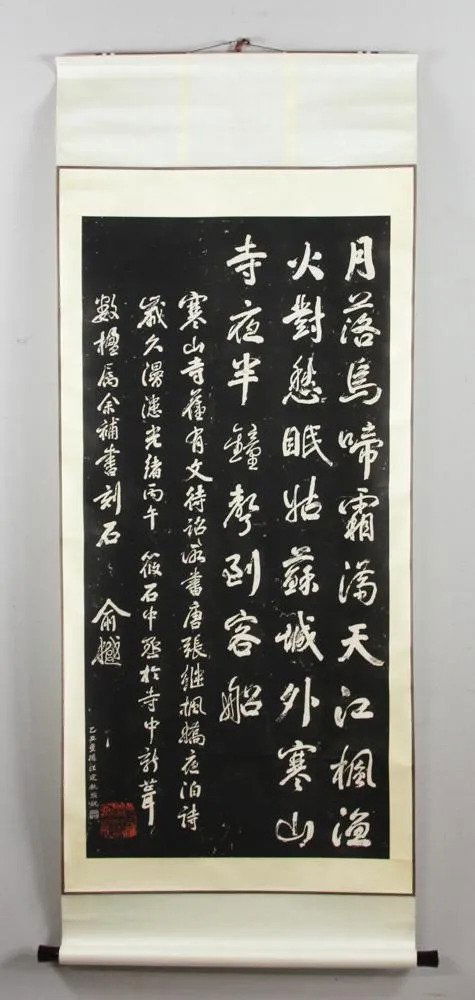 月落烏啼霜满天江楓漁
火對愁眠姑蘇城外寒山
寺夜半鐘聲到客船
寒山寺舊有文待詔所書唐張継楓橋夜泊詩
歲久漫漶光緒丙午 筱石中丞於寺中新葺
數楹属余補書刻石 俞樾